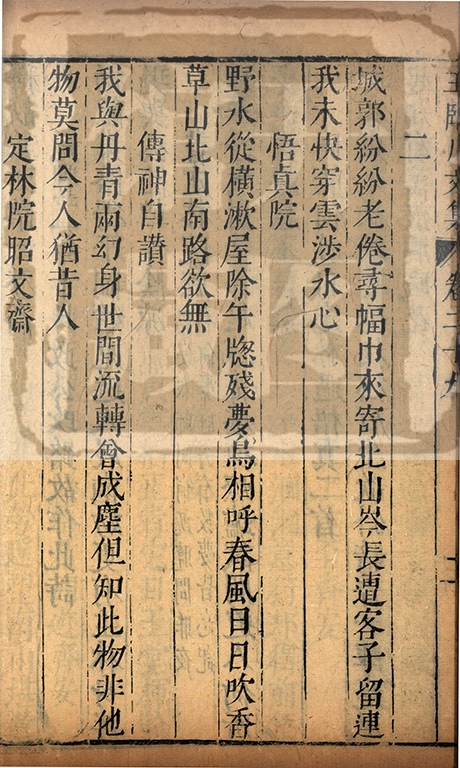 王臨川文集
卷二十九
二
城郭紛紛老倦尋幅巾來寄北山岑長遭客子留連
我未快穿雲涉水心
悟真院
野水從橫漱屋除午牎殘夢鳥相呼春風日日吹香
草山北山南路欲無
傳神自讃
我與丹青兩幻身世間流轉會成塵但知此物非他
物莫問今人猶昔人
定林院昭文齋